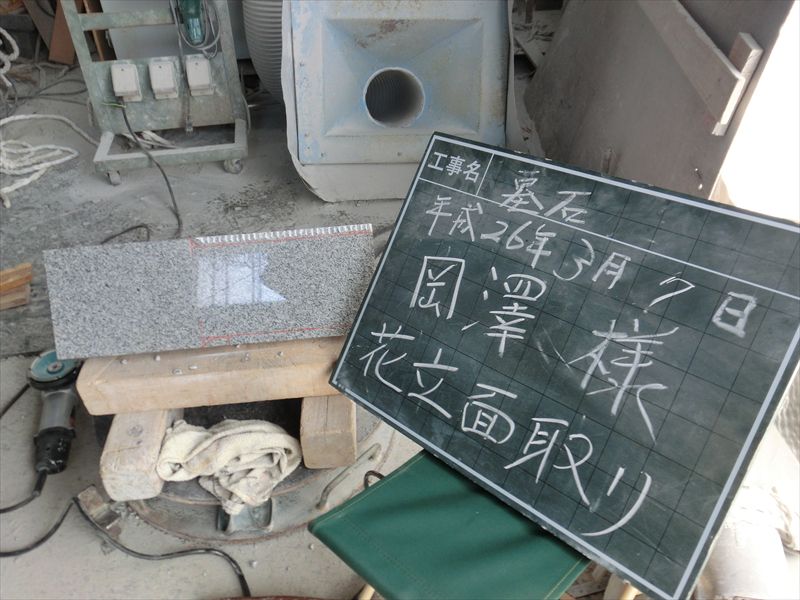 工事名 墓石
平成26年3月7日
岡澤 様
花立面取り